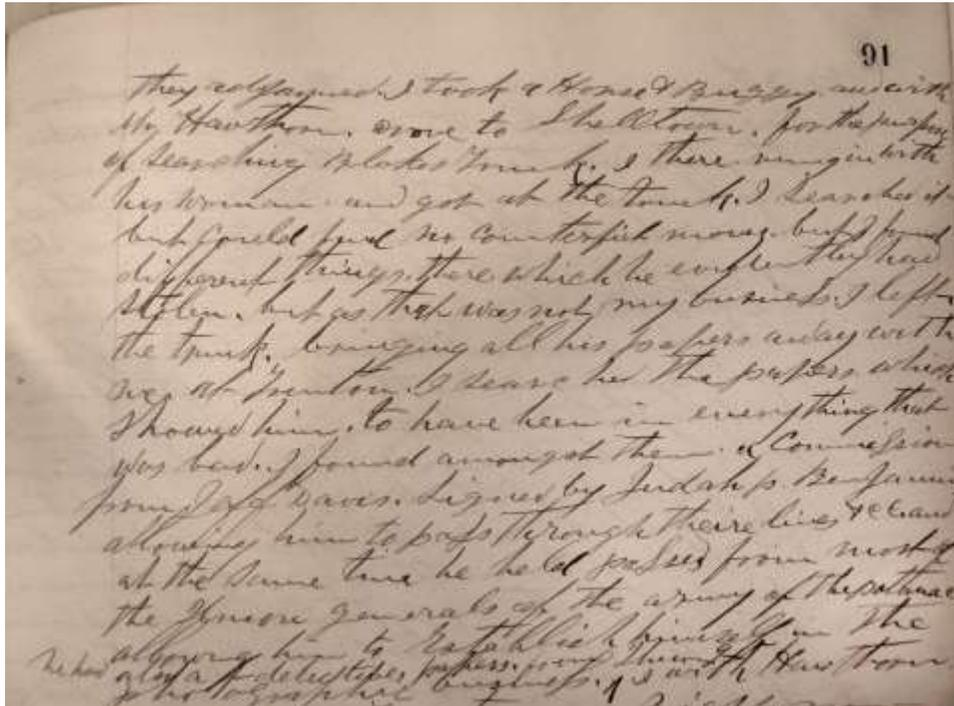 91
they adjourned I took a Horse & Buggy and with
Mr Hawthorn. drove to Shelltown. for the purpose
of searching Blakes Trunk. I there run in with
his woman and got at the trunk. I Searched it
but Could find no counterfeit money. but I found
different things there which he evidently had
stolen. but as that was not my business. I left
the trunk. bringing all his papers away with
at Trenton. I searched the papers which
Showed him. to have been in everything that
was bad. I found amongst them a Commission
from Jeff Davis. Signed by Judah P. Benjamin
allowing him to pass through theire lines &c. and
at the same time he held passes from most of
the Union generals of the army of the potomac
allowing him to Establish himself in the
he had also a detectives papers. I with Hawthorn
photographic business.